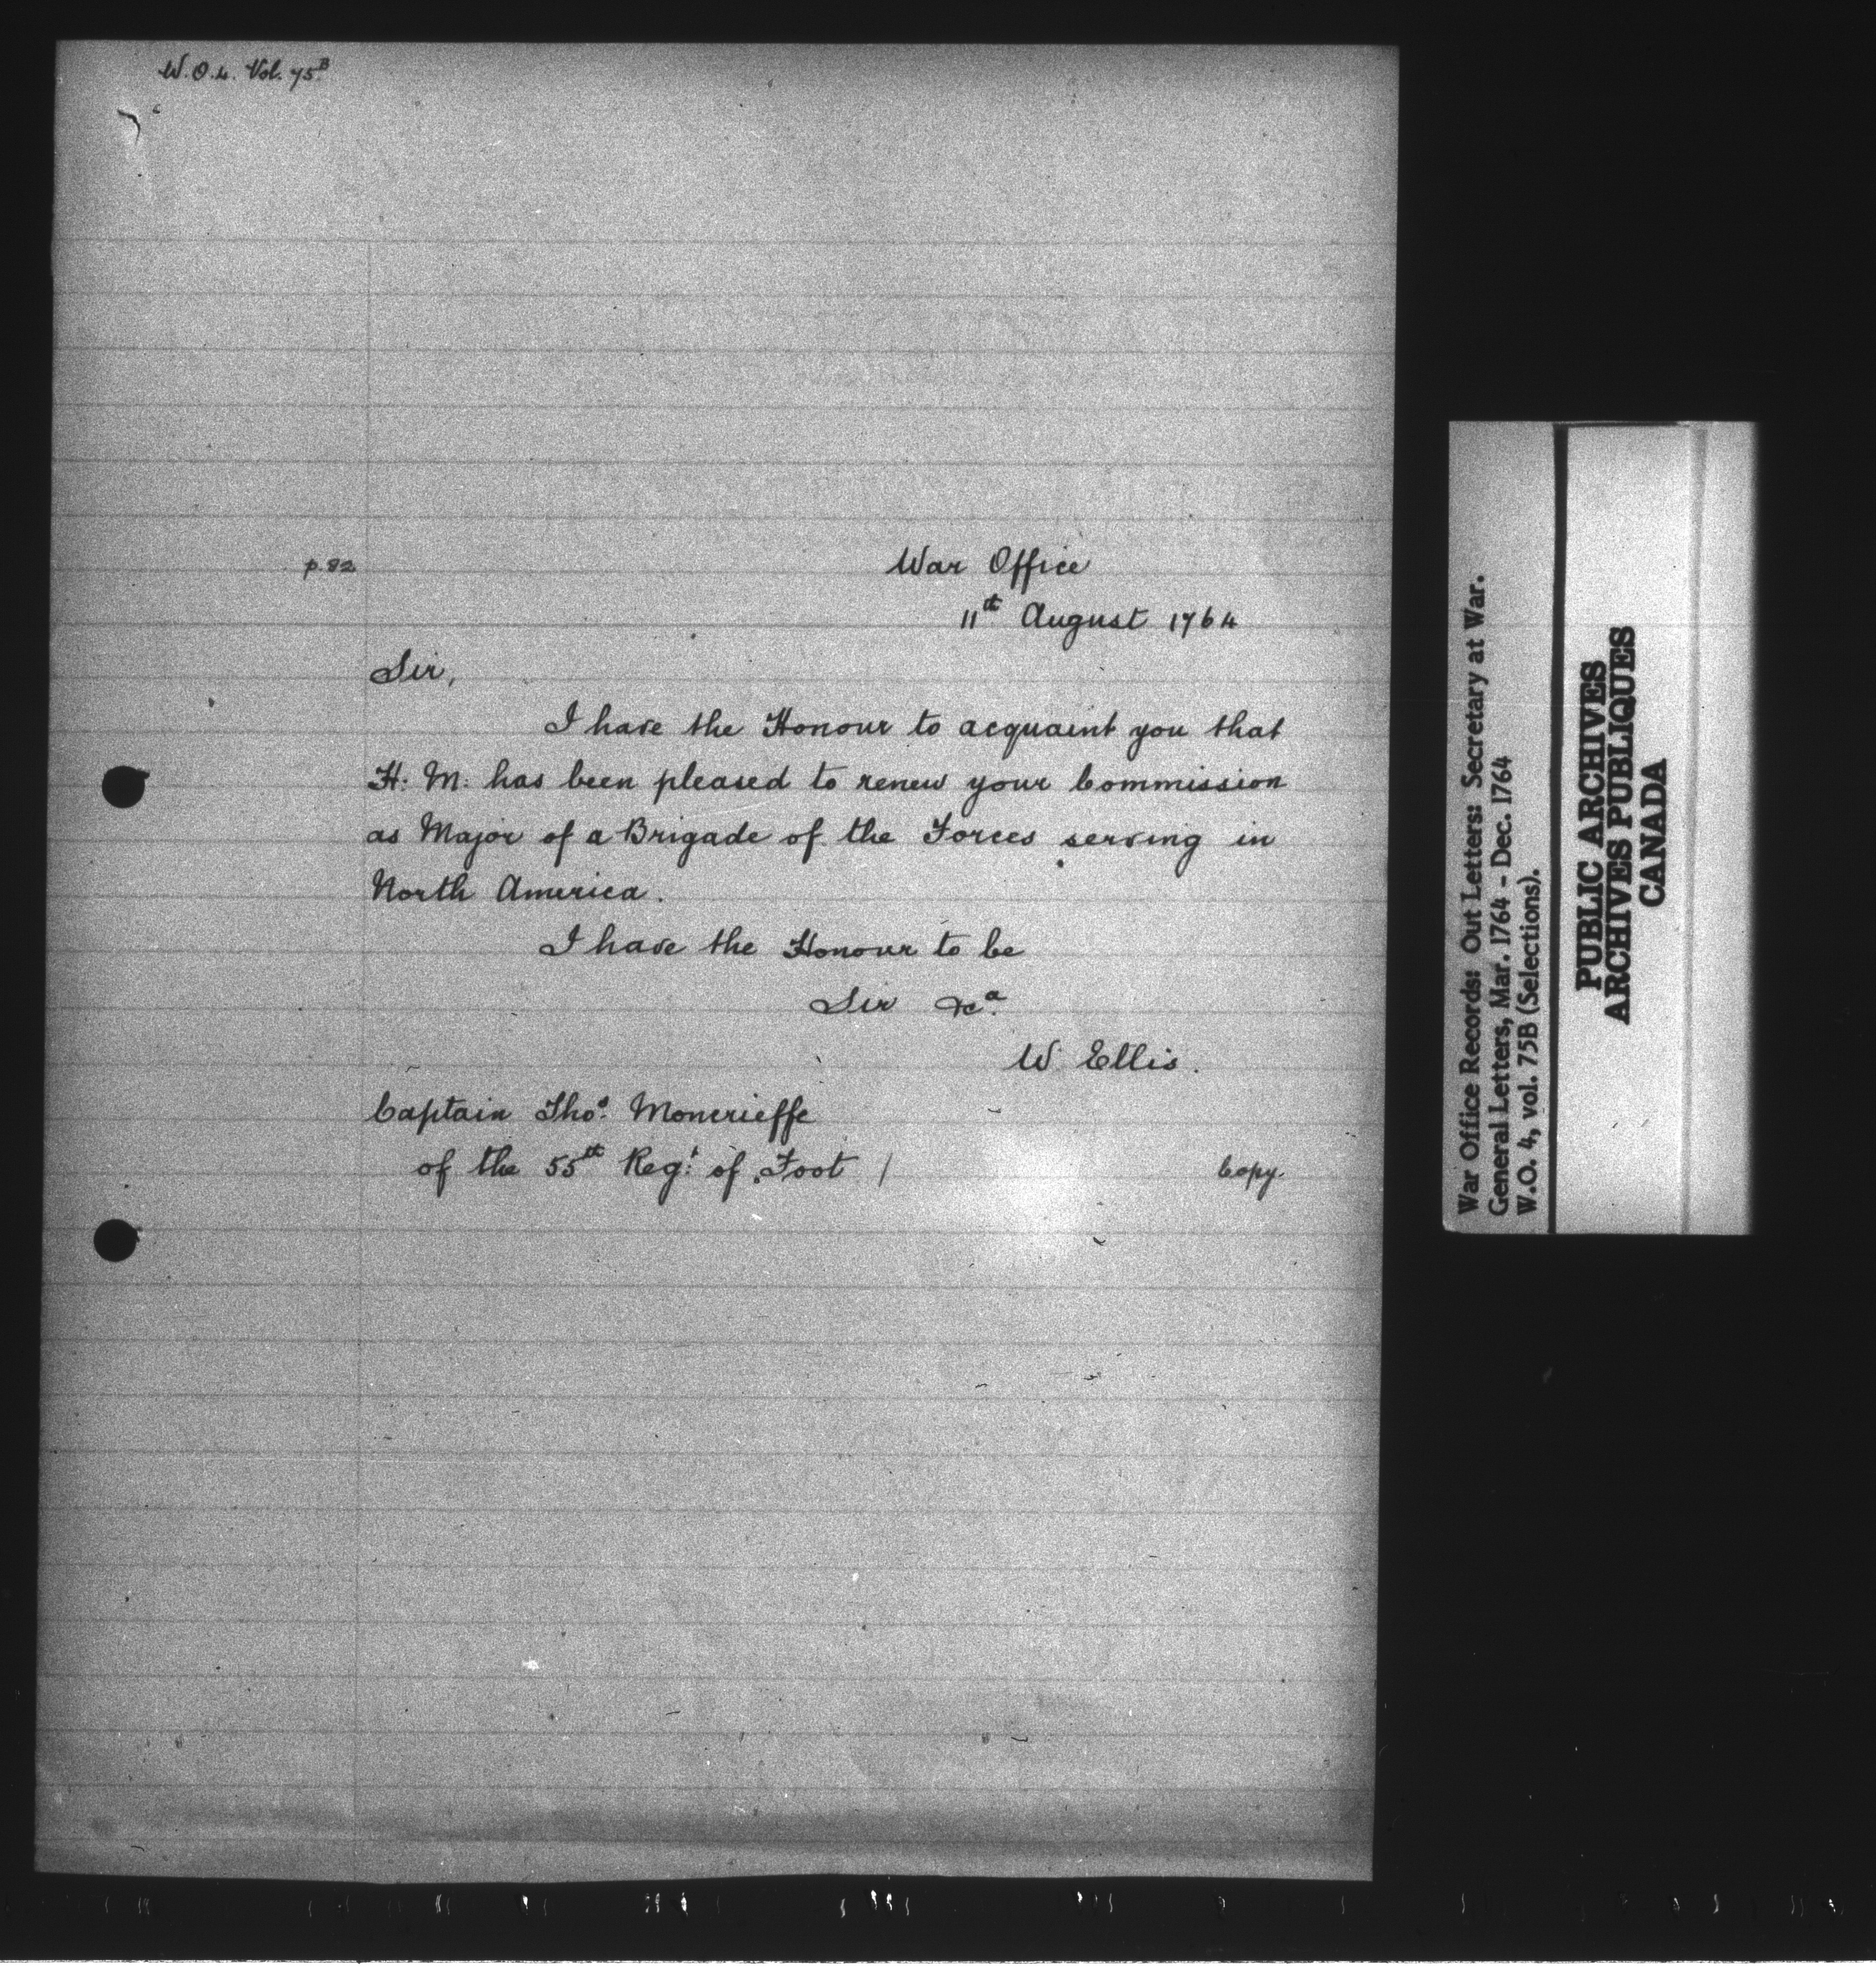 W.O.4. Vol. 75ᴮ
p. 82
War Office
11th August 1764
Sir,
I have the Honour to acquaint you that
H: M: has been pleased to renew your Commission
as Major of a Brigade of the Forces serving in
North America.
I have the Honour to be
Sir &cᵃ.
W Ellis.
Captain Thoˢ. Moncrieffe
of the 55th Regᵗ: of Foot /
Copy.
War Office Records: Out Letters: Secretary at War.
General Letters, Mar. 1764 - Dec. 1764
W.O. 4, vol. 75B (Selections).
PUBLIC ARCHIVES
ARCHIVES PUBLIQUES
CANADA